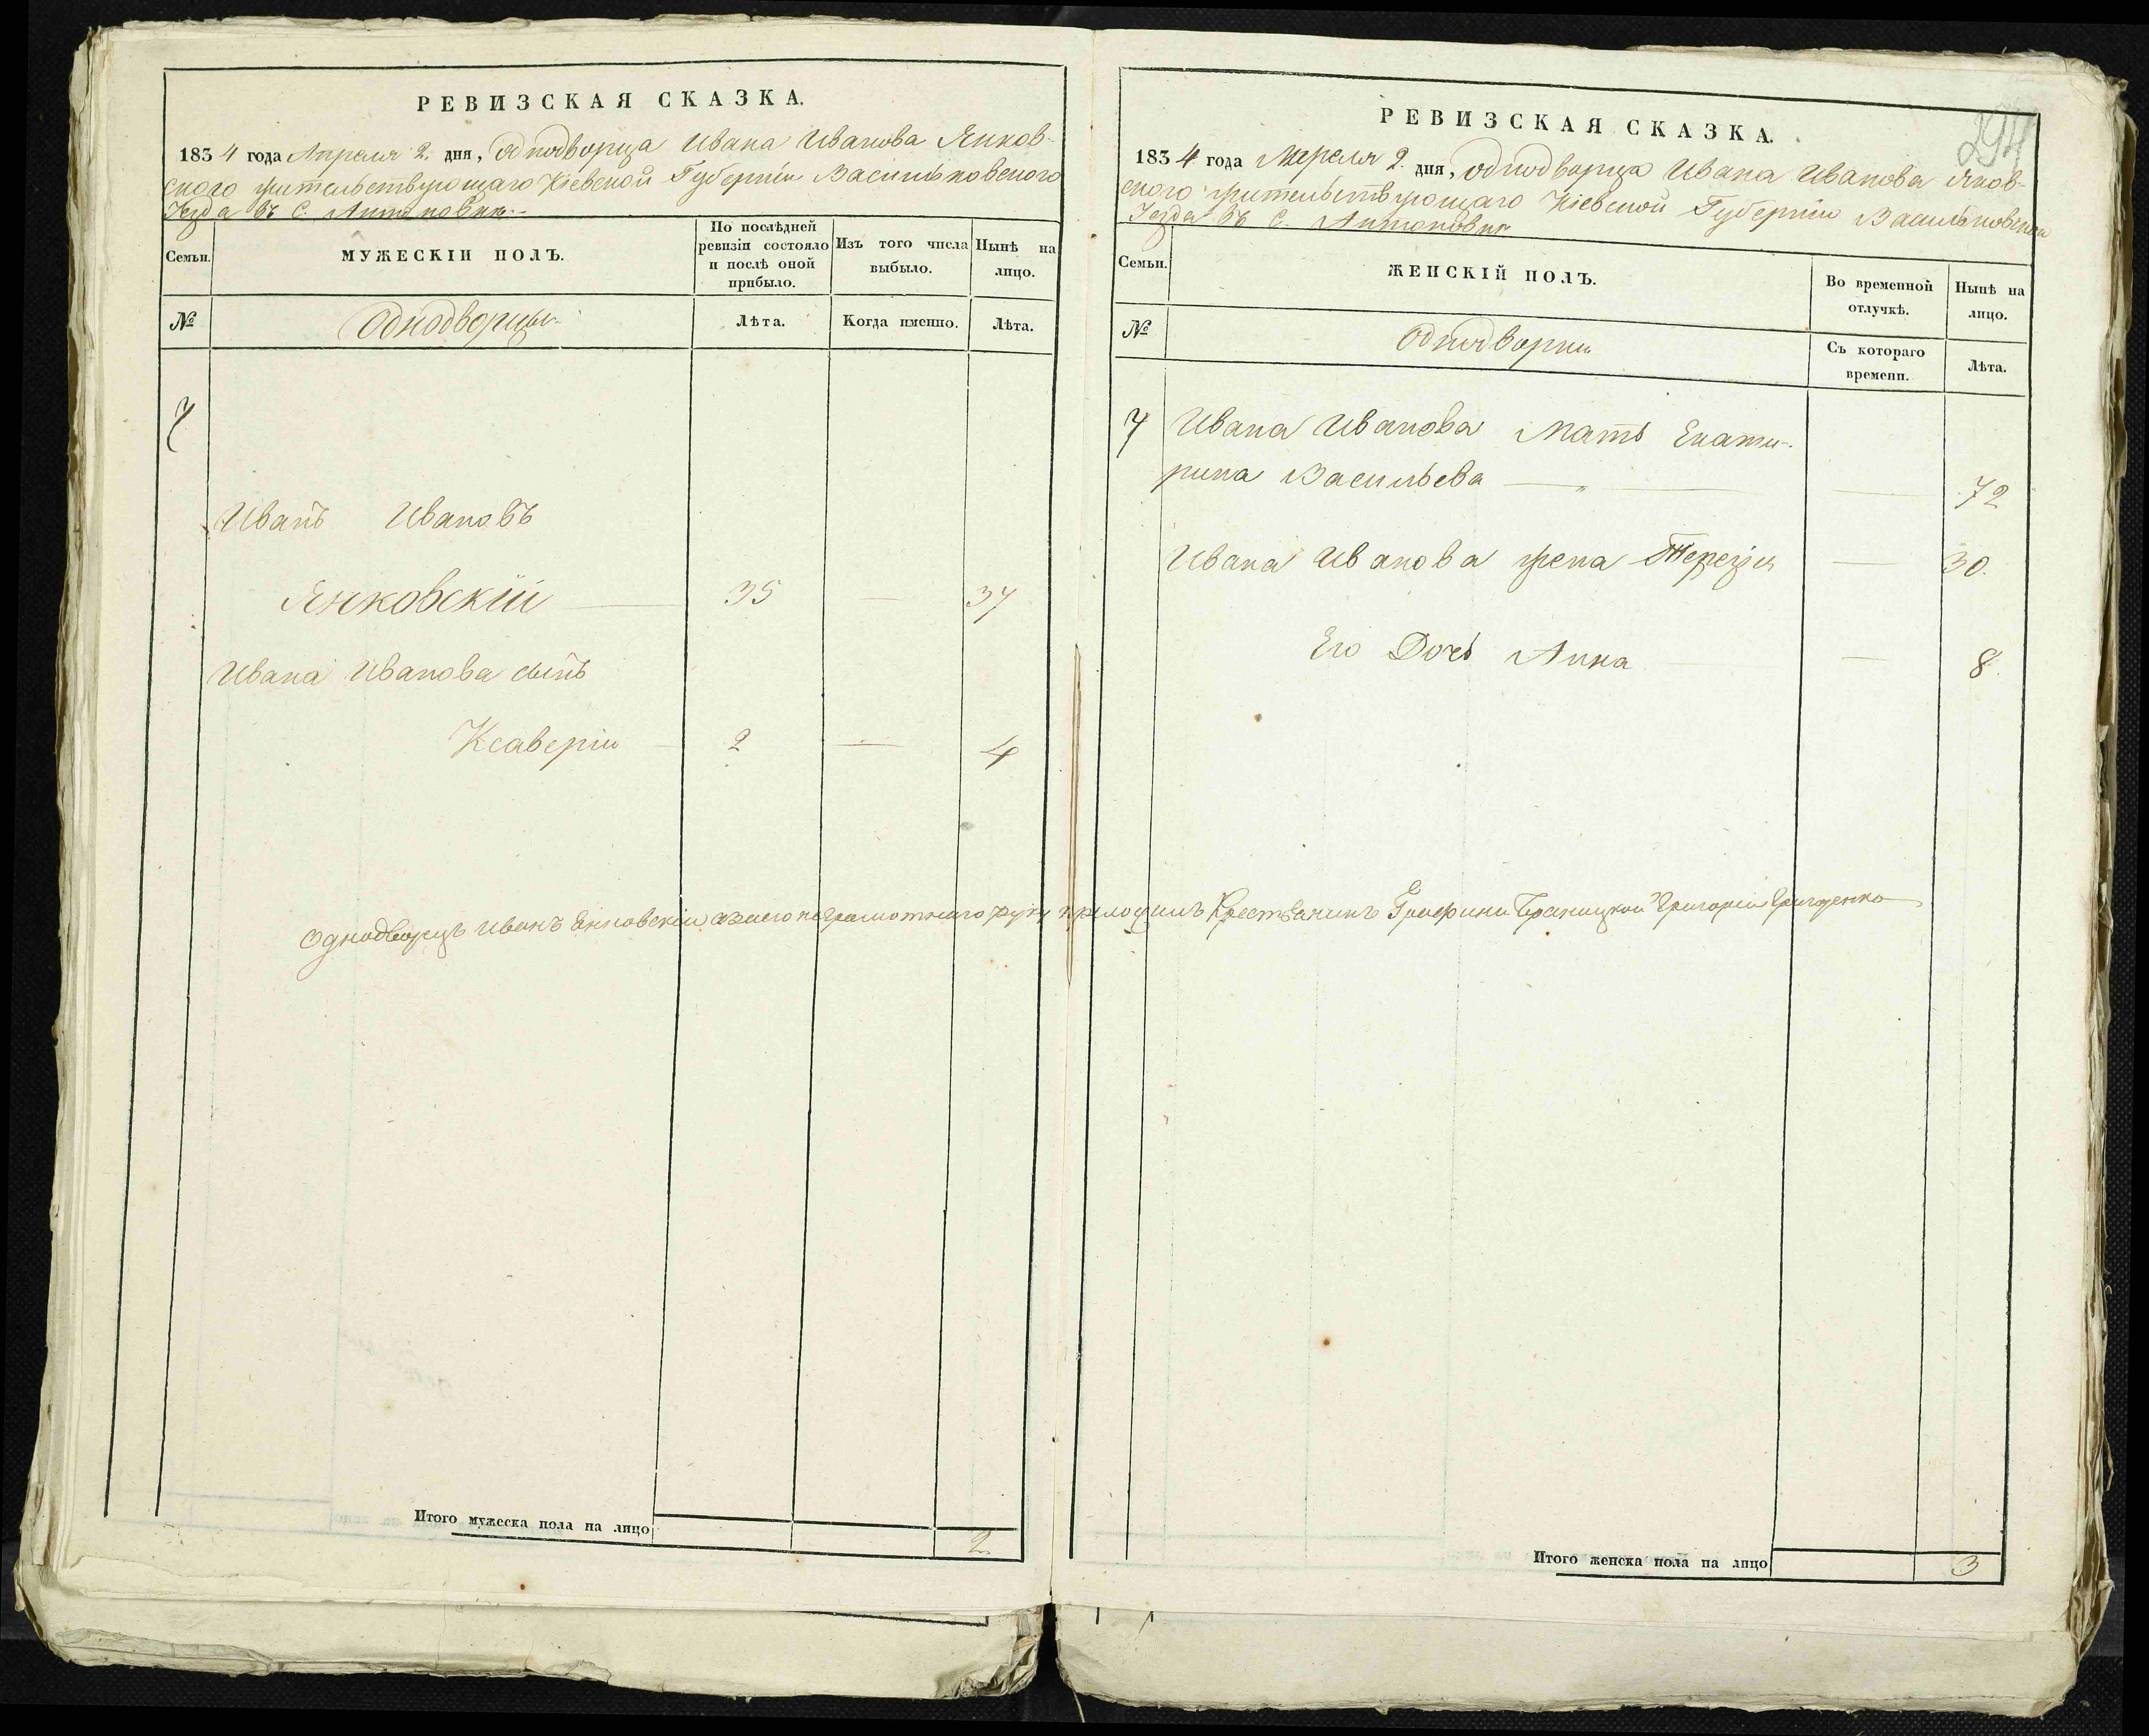 РЕВИЗСКАЯ СКАЗКА.
1834 года Апреля 2. дня, однодворца Ивана Иванова Янков-
ского жительствующаго Кіевской Губерніи Васильковского
Уезда въ С. Антоновки
Семьи.
МУЖЕСКІЙ ПОЛЪ.
По послѣдней
ревизіи состояло
и послѣ оной
прибыло.
Изъ того числа
выбыло.
Нынѣ на
лицо.
№
Однодворцы
Лѣта.
Когда именно.
Лѣта.
7
Иванъ Ивановъ
Янковскій 35 — 37
Ивана Иванова сынъ
Ксаверій 2 — 4
Итого мужеска пола на лицо 2
294
РЕВИЗСКАЯ СКАЗКА.
1834 года Апреля 2. дня, однодворца Ивана Иванова Янков-
ского жительствующаго Кіевской Губерніи Васильковского
Уезда въ С. Антоновки
Семьи.
ЖЕНСКІЙ ПОЛЪ.
Во временной
отлучкѣ.
Нынѣ на
лицо.
№
Однодворки
Съ котораго
времени.
Лѣта.
7 Ивана Иванова Мать Екати-
рина Васильева — — 72
Ивана Иванова жена Терезія — 30.
Его Дочь Анна — 8
Однодворецъ Иванъ Янковскій а за его неграмотнаго руку приложилъ Крестьянинъ Графини Браницкой Григорій
Итого женска пола на лицо 3